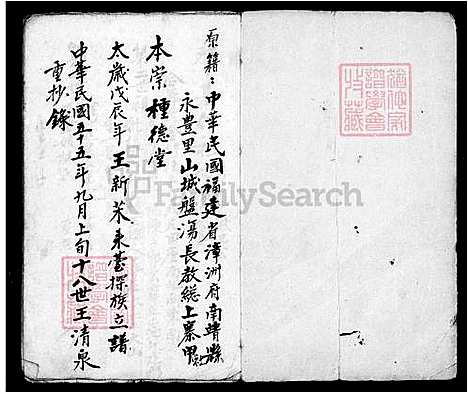 原籍：中華民國福建省漳洲府南靖縣
永豊里山城盤湯長教総上寨甲社
本宗種德堂
太歲戊辰年王新茱来臺探族立譜
中華民國五十五年九月上旬十八世王清泉
重抄錄
FamilySearch